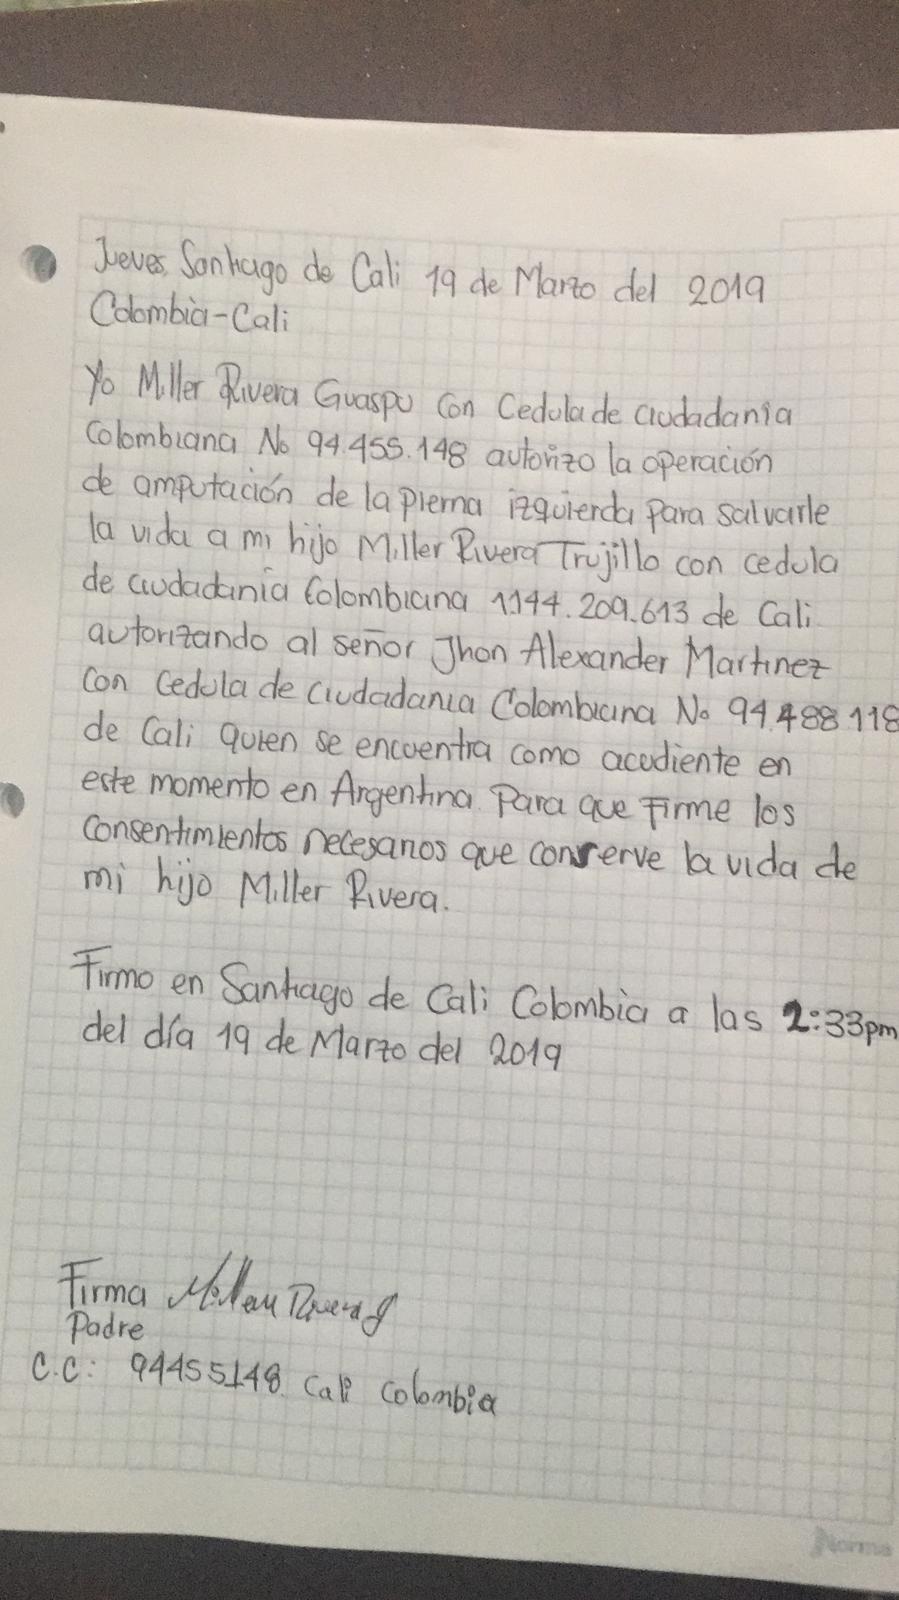 Jueves, Santiago de Cali 19 de Marzo del 2019
Colombia-Cali
Yo Miller Rivera Guaspu con Cedula de ciudadania
Colombiana No 94.455.148 autorizo la operación
de amputación de la pierna izquierda para salvarle
la vida a mi hijo Miller Rivera Trujillo con cedula
de ciudadanía Colombiana 1.144.209.613 de Cali
autorizando al señor Jhon Alexander Martinez
con Cedula de Ciudadania Colombiana No 94.488.118
de Cali quien se encuentra como acudiente en
este momento en Argentina. Para que firme los
consentimientos necesarios que conserve la vida de
mi hijo Miller Rivera.
Firmo en Santiago de Cali Colombia a las 2:33pm
del día 19 de Marzo del 2019
Firma Miller Rivera G
Padre
C.C: 94455148 Cali Colombia
Norma